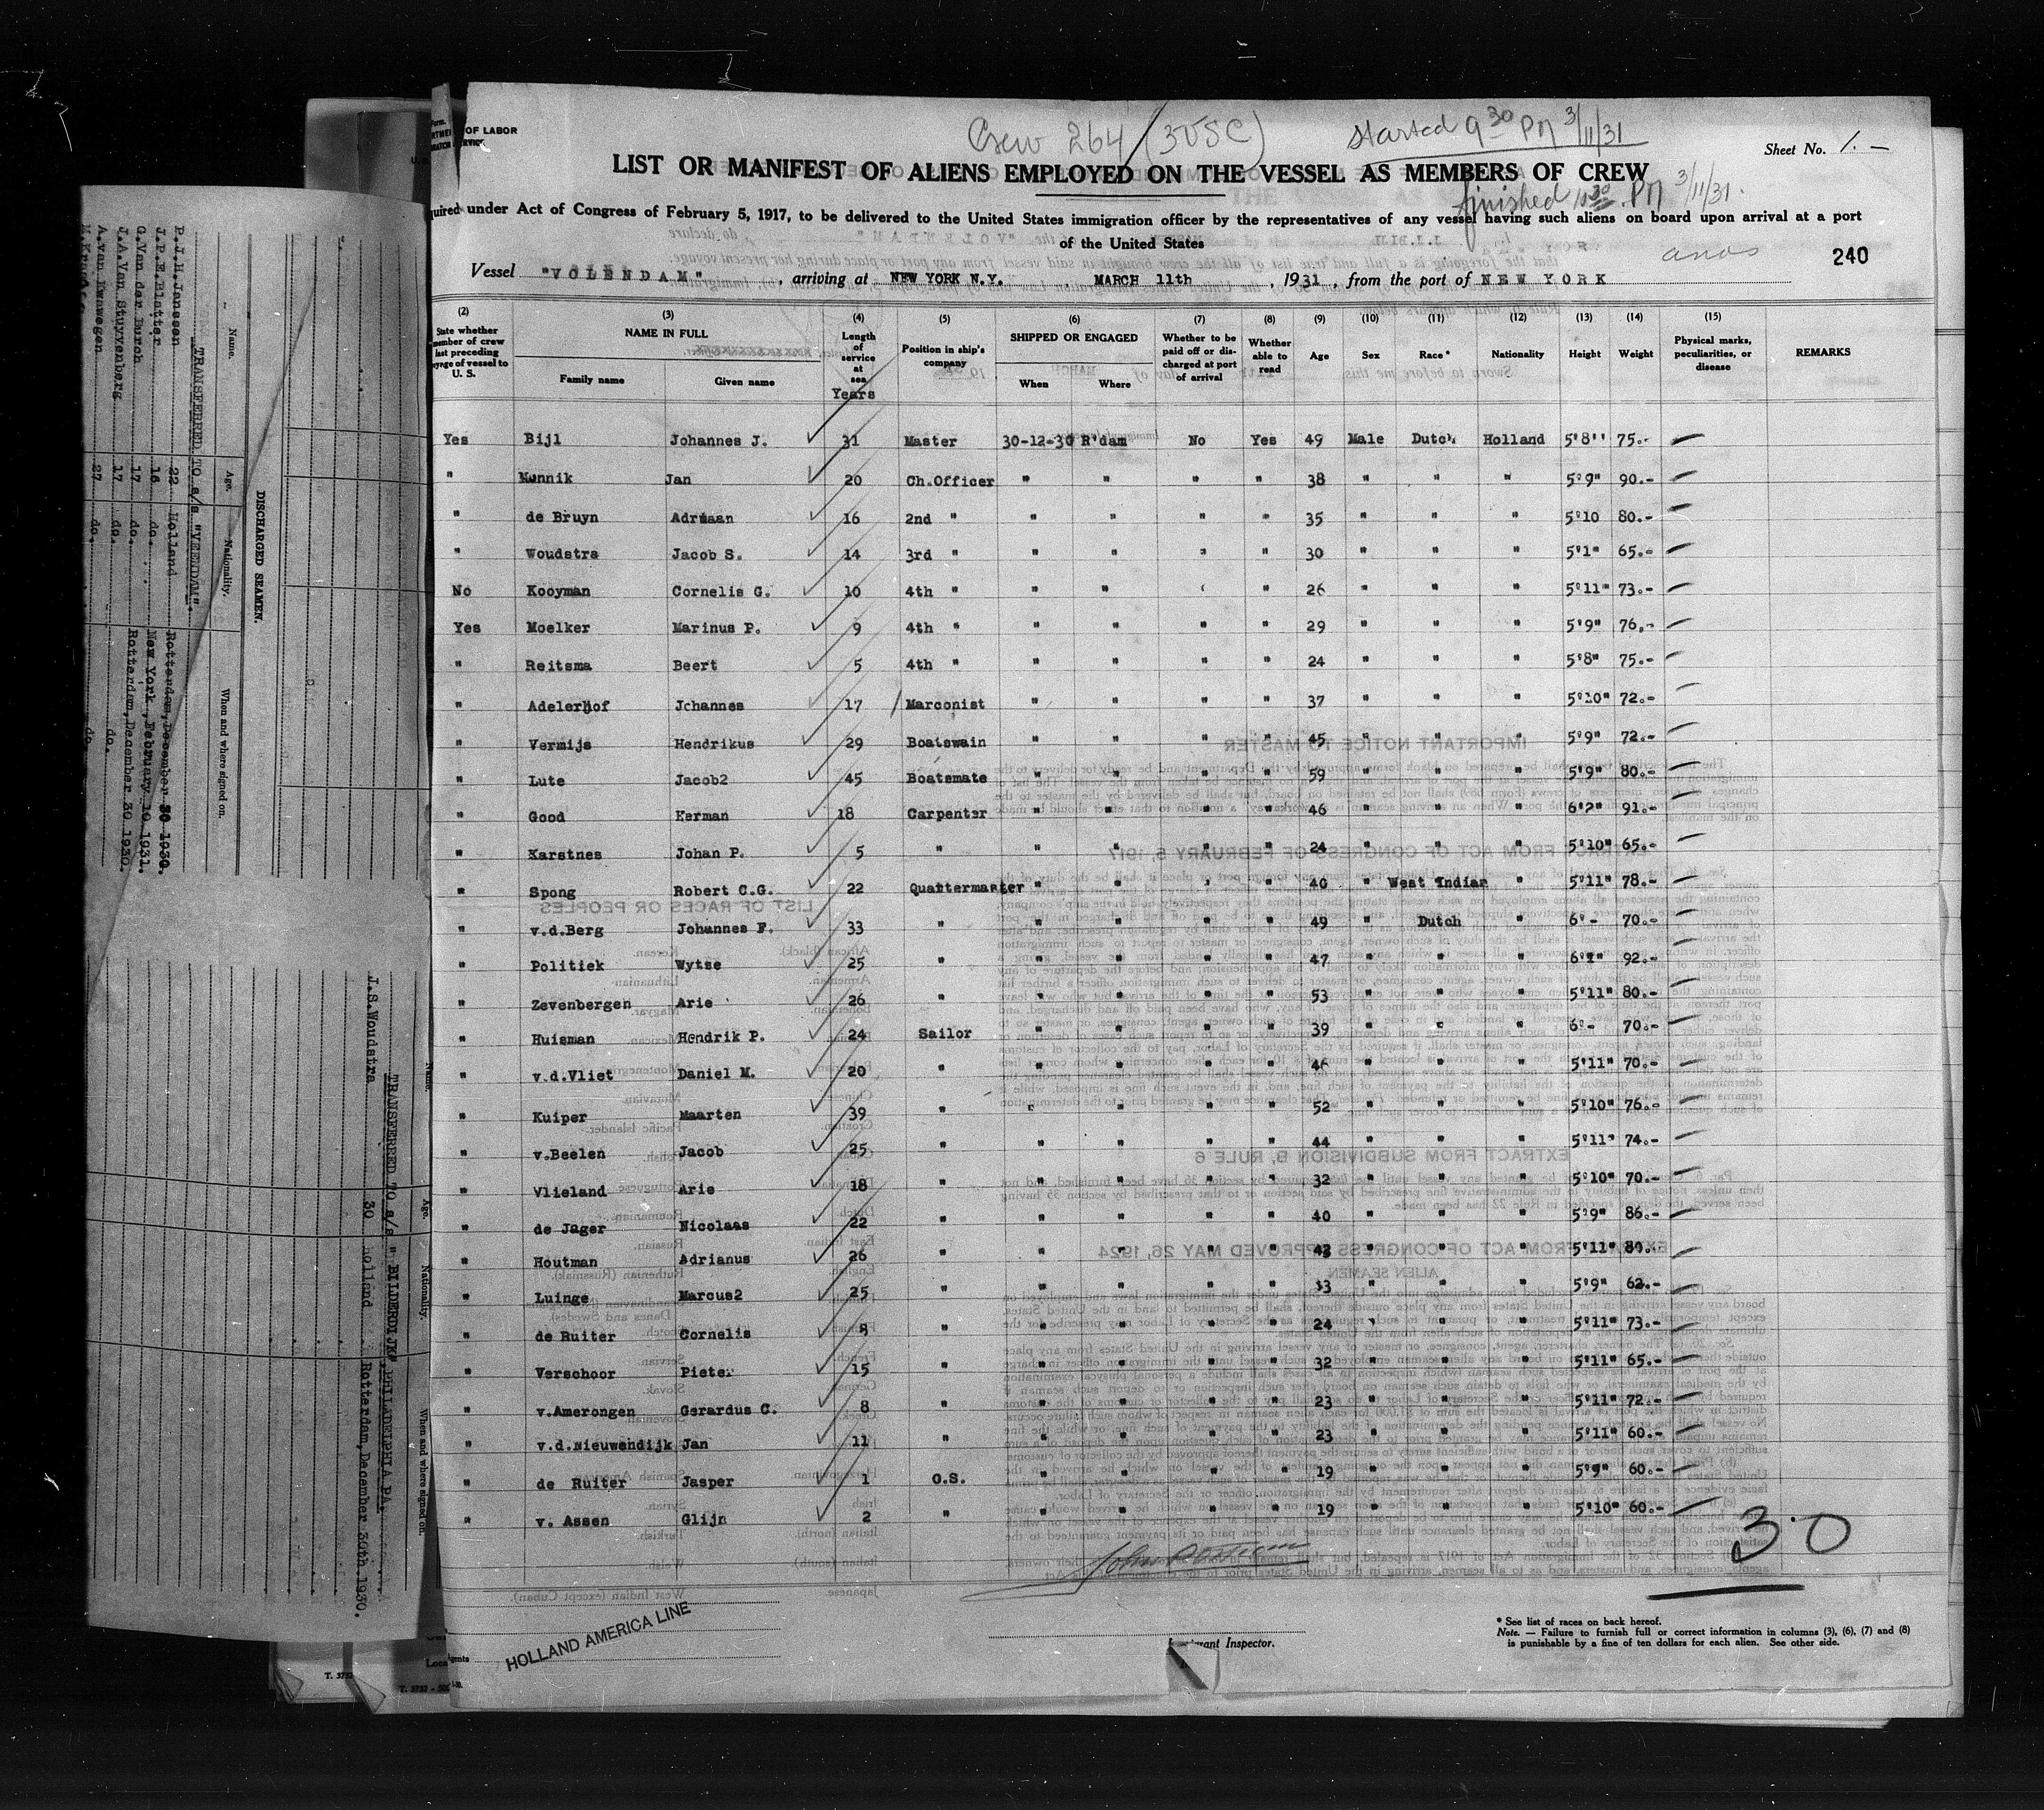 Crew 264 (3USC)
started 9 30 PM 3/11/31
Sheet No. 1. -
OF LABOR
LIST OR MANIFEST OF ALIENS EMPLOYED ON THE VESSEL AS MEMBERS OF CREW
finished 10 30 PM 3/11/31.
under Act of Congress of February 5, 1917, to be delivered to the United States immigration officer by the representatives of any vessel having such aliens on board upon arrival at a port
of the United States
240
Vessel "VOLENDAM", arriving at NEW YORK N.Y., MARCH 11th, 1931, from the port of NEW YORK
(2) (3) (4) (5) (6) (7) (8) (9) (10) (11) (12) (13) (14) (15)
State whether member of crew last preceding voyage of vessel to U. S. NAME IN FULL Family name Given name Length of service at sea Years Position in ship's company SHIPPED OR ENGAGED When Where Whether to be paid off or discharged at port of arrival Whether able to read Age Sex Race * Nationality Height Weight Physical marks, peculiarities, or disease REMARKS
Yes Bijl Johannes J. 31 Master 30-12-30 R'dam No Yes 49 Male Dutch Holland 5'8'' 75.-
" Munnik Jan 20 Ch.Officer " " " " 38 " " " 5'9" 90.-
" de Bruyn Adriaan 16 2nd " " " " " 35 " " " 5'10 80.-
" Woudstra Jacob S. 14 3rd " " " " " 30 " " " 5'1" 65.-
No Kooyman Cornelis G. 10 4th " " " " " 26 " " " 5'11" 73.-
Yes Moelker Marinus P. 9 4th " " " " " 29 " " " 5'9" 76.-
" Reitsma Beert 5 4th " " " " " 24 " " " 5'8" 75.-
" Adelerhof Johannes 17 Marconist " " " " 37 " " " 5'10" 72.-
" Vermijs Hendrikus 29 Boatswain " " " " 45 " " " 5'9" 72.-
" Lute Jacob2 45 Boatsmate " " " " 59 " " " 5'9" 80.-
" Good Herman 18 Carpenter " " " " 46 " " " 6'2" 91.-
" Karstnes Johan P. 5 " " " " " 24 " " " 5'10" 65.-
" Spong Robert C.G. 22 Quartermaster " " " " 40 " West Indian " 5'11" 78.-
" v.d.Berg Johannes F. 33 " " " " " 49 " Dutch " 6'- 70.-
" Politiek Wytse 25 " " " " " 47 " " " 6'1" 92.-
" Zevenbergen Arie 26 " " " " " 53 " " " 5'11" 80.-
" Huisman Hendrik P. 24 Sailor " " " " 39 " " " 6'- 70.-
" v.d.Vliet Daniel M. 20 " " " " " 46 " " " 5'11" 70.-
" Kuiper Maarten 39 " " " " " 52 " " " 5'10" 76.-
" v.Beelen Jacob 25 " " " " " 44 " " " 5'11" 74.-
" Vlieland Arie 18 " " " " " 32 " " " 5'10" 70.-
" de Jager Nicolaas 22 " " " " " 40 " " " 5'9" 86.-
" Houtman Adrianus 26 " " " " " 43 " " " 5'11" 80.-
" Luinge Marcus2 25 " " " " " 33 " " " 5'9" 62.-
" de Ruiter Cornelis 8 " " " " " 24 " " " 5'11" 73.-
" Verschoor Pieter 15 " " " " " 32 " " " 5'11" 65.-
" v.Amerongen Gerardus C. 8 " " " " " 23 " " " 5'11" 72.-
" v.d.Nieuwendijk Jan 11 " " " " " 23 " " " 5'11" 60.-
" de Ruiter Jasper 1 O.S. " " " " 19 " " " 5'9" 60.-
" v. Assen Glijn 2 " " " " " 19 " " " 5'10" 60.-
30
HOLLAND AMERICA LINE
Immigrant Inspector.
* See list of races on back hereof.
Note. — Failure to furnish full or correct information in columns (3), (6), (7) and (8)
is punishable by a fine of ten dollars for each alien. See other side.
DISCHARGED SEAMEN.
Name. Age. Nationality. When and where signed on.
TRANSFERRED TO s/s "VEENDAM".
P.J.H.Janssen 22 Holland Rotterdam, December 30 1930.
J.P.E.Blatter 16 do. New York, February 10 1931.
G.Van der Burch 17 do. Rotterdam, December 30 1930.
J.A.Van Stuyvenberg 17 do. do.
A.van Kwawegen 27 do. do.
Name. Age. Nationality. When and where signed on.
TRANSFERRED TO s/s "BILDERDIJK" PHILADELPHIA PA.
J.S.Woudstra 30 Holland Rotterdam, December 30th 1930.